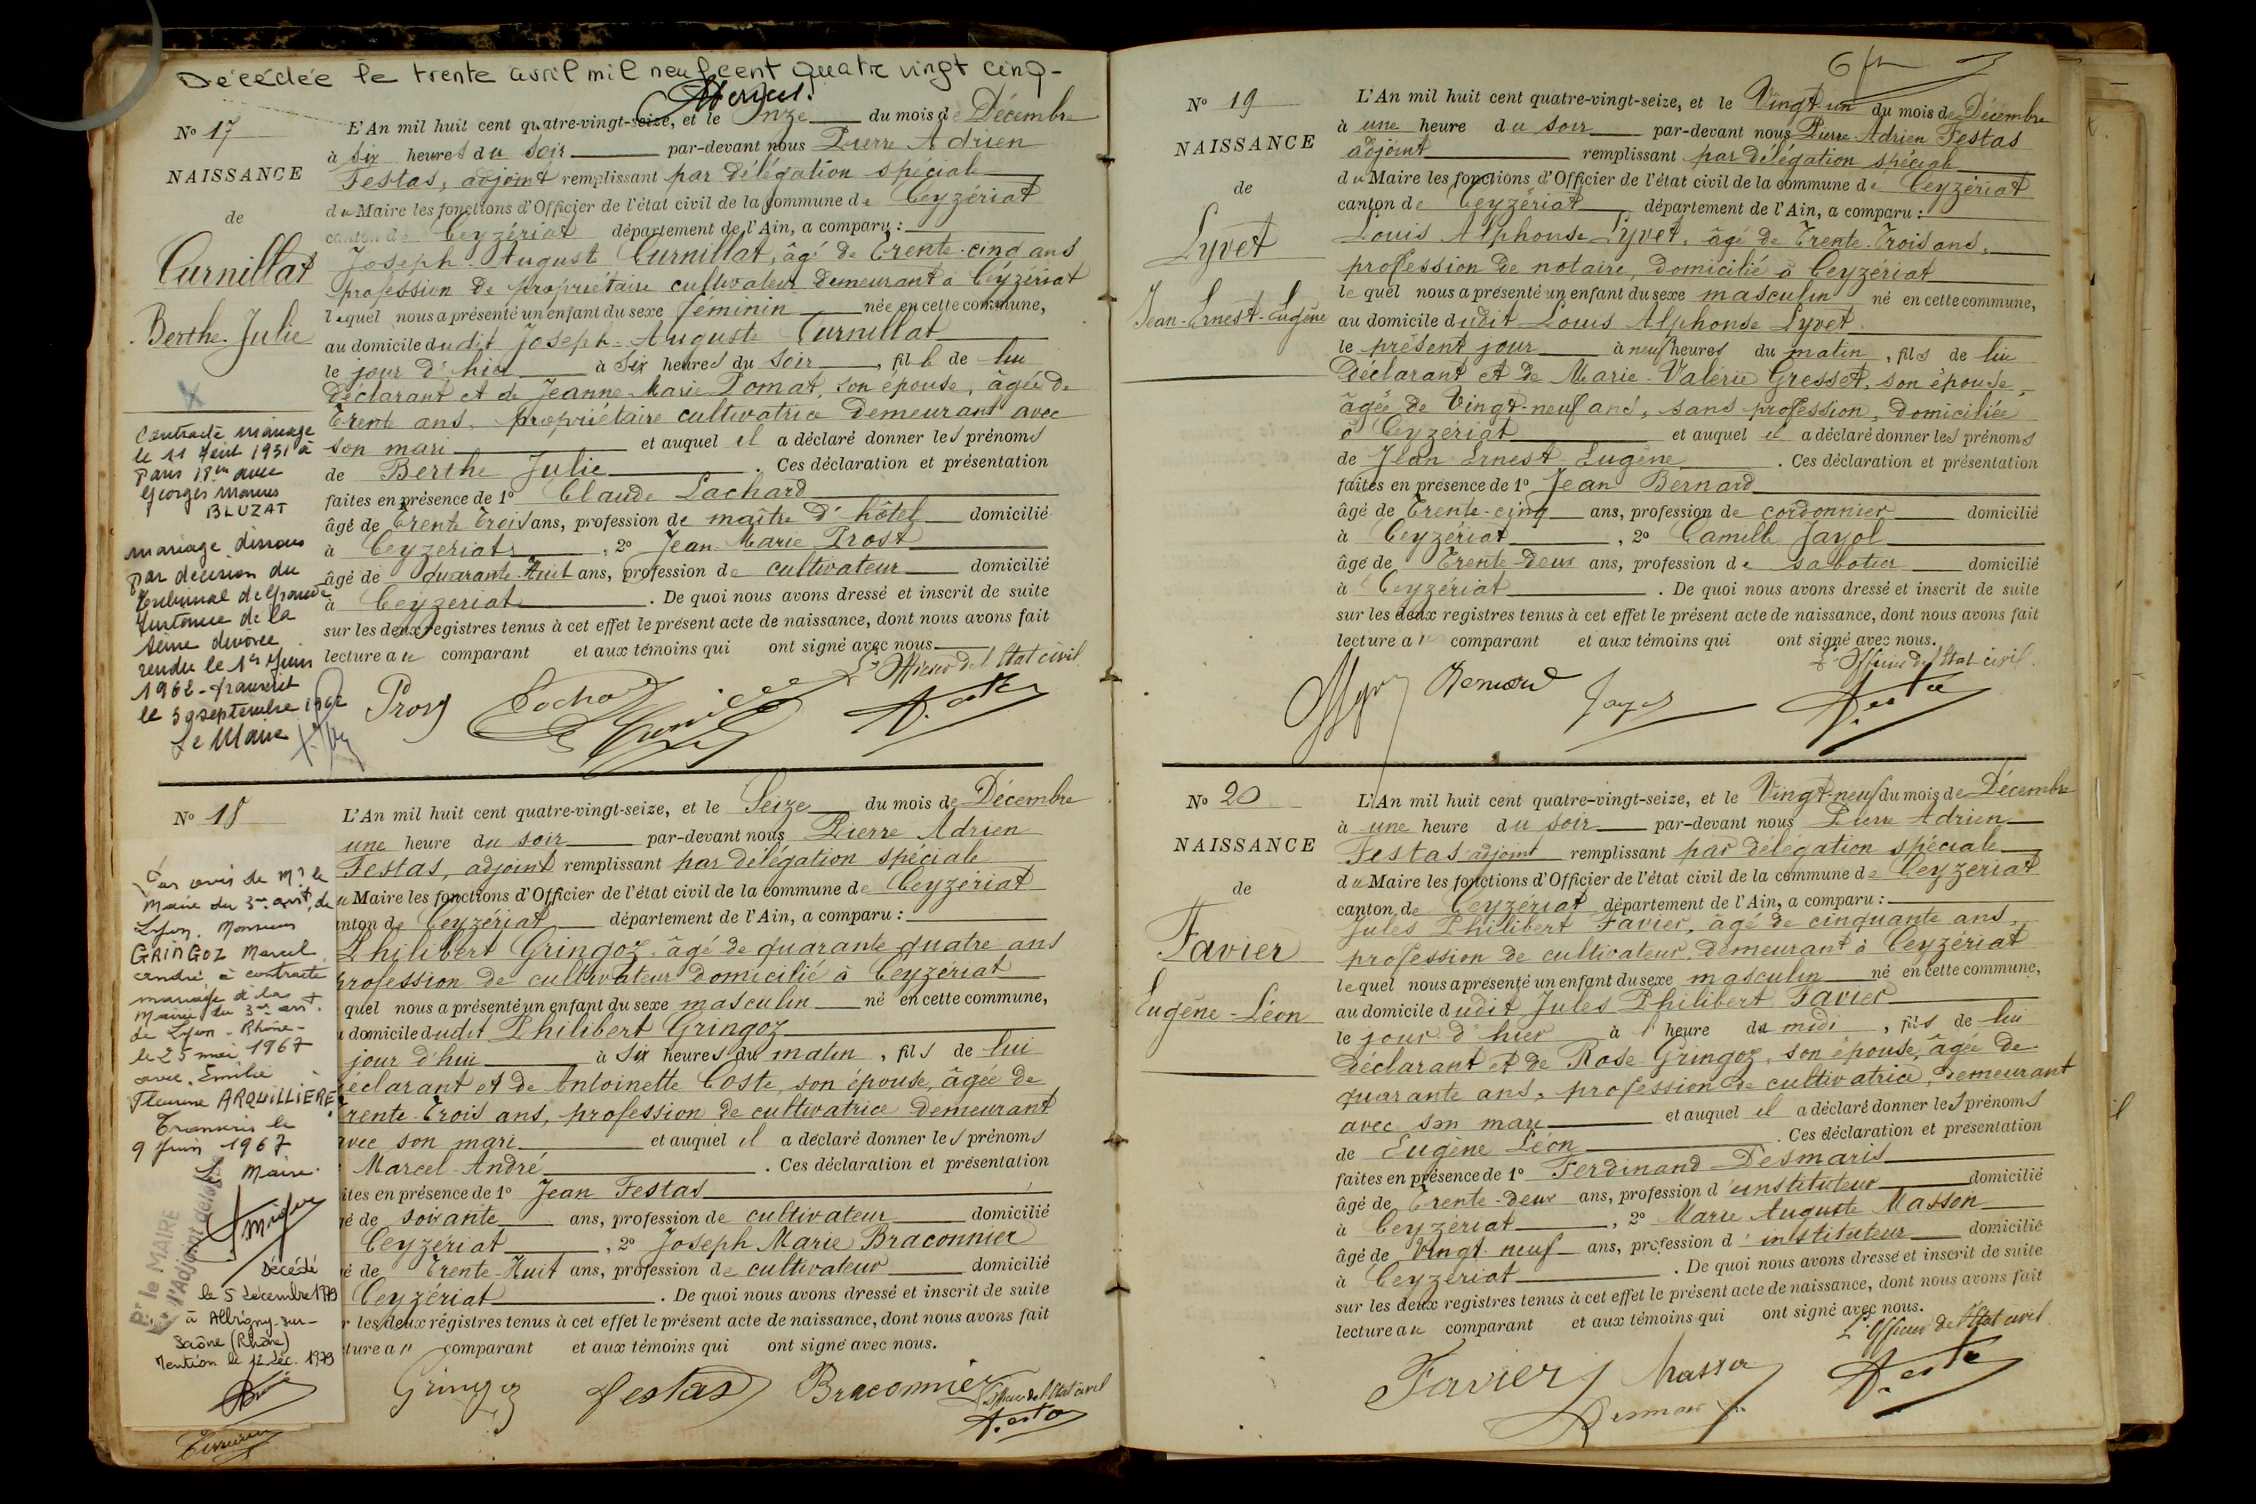 Décédée le trente avril mil neuf cent quatre vingt cinq-
No 17
NAISSANCE
de
Curnillat
Berthe-Julie
Contracté mariage
le 11 Août 1931 à
Paris 18me avec
Georges Marius
BLUZAT
mariage dissous
par décision du
Tribunal de Grande
Instance de la
Seine divorce
rendu le 1er Juin
1962 - transcrit
le 3 septembre 1962
Le Maire
L'An mil huit cent quatre-vingt-seize, et le Onze du mois de Décembre
à six heures du soir par-devant nous Pierre Adrien
Festas, adjoint remplissant par délégation spéciale
du Maire les fonctions d'Officier de l'état civil de la commune de Ceyzériat
canton de Ceyzériat département de l'Ain, a comparu :
Joseph-Auguste Curnillat, âgé de Trente-cinq ans
profession de propriétaire cultivateur demeurant à Ceyzériat
lequel nous a présenté un enfant du sexe féminin née en cette commune,
au domicile dudit Joseph-Auguste Curnillat
le jour d'hier à six heures du soir, fille de lui
déclarant et de Jeanne-Marie Pomat, son épouse, âgée de
Trente ans, propriétaire cultivatrice demeurant avec
son mari et auquel il a déclaré donner les prénoms
de Berthe Julie . Ces déclaration et présentation
faites en présence de 1o Claude Lachard
âgé de Trente Trois ans, profession de maître d'hôtel domicilié
à Ceyzériat, 2o Jean-Marie Prost
âgé de quarante-Huit ans, profession de cultivateur domicilié
à Ceyzériat . De quoi nous avons dressé et inscrit de suite
sur les deux registres tenus à cet effet le présent acte de naissance, dont nous avons fait
lecture au comparant et aux témoins qui ont signé avec nous
L'Officier de l'Etat civil
Prost
No 18
Par avis de Mr le
Maire du 3me arrt, de
Lyon, Monsieur
GRINGOZ Marcel
André, a contracté
mariage à la
Mairie du 3me arrt
de Lyon - Rhône-
le 25 mai 1967
avec Emilie
Fleurine ARQUILLIÈRE.
Transcris le
9 Juin 1967
Le Maire
Pr le MAIRE
l'Adjoint délégué
Décédé
le 5 décembre 1979
à Albigny-sur-
Saône (Rhône)
Mention le 12 déc. 1979
L'An mil huit cent quatre-vingt-seize, et le Seize du mois de Décembre
une heure du soir par-devant nous Pierre Adrien
Festas, adjoint remplissant par délégation spéciale
u Maire les fonctions d'Officier de l'état civil de la commune de Ceyzériat
nton de Ceyzériat département de l'Ain, a comparu :
Philibert Gringoz, âgé de quarante quatre ans
profession de cultivateur domicilié à Ceyzériat
quel nous a présenté un enfant du sexe masculin né en cette commune,
u domicile dudit Philibert Gringoz
jour d'hui à six heures du matin, fils de lui
déclarant et de Antoinette Coste, son épouse, âgée de
Trente-Trois ans, profession de cultivatrice demeurant
avec son mari et auquel il a déclaré donner les prénoms
Marcel-André . Ces déclaration et présentation
ites en présence de 1o Jean Festas
é de soixante ans, profession de cultivateur domicilié
Ceyzériat, 2o Joseph Marie Braconnier
é de Trente-Huit ans, profession de cultivateur domicilié
Ceyzériat . De quoi nous avons dressé et inscrit de suite
r les deux régistres tenus à cet effet le présent acte de naissance, dont nous avons fait
ture au comparant et aux témoins qui ont signé avec nous.
Gringoz Festas Braconnier L'Officier de l'Etat civil
No 19
NAISSANCE
de
Lyvet
Jean-Ernest-Eugène
L'An mil huit cent quatre-vingt-seize, et le Vingt-un du mois de Décembre
à une heure du soir par-devant nous Pierre Adrien Festas
adjoint remplissant par délégation spéciale
du Maire les fonctions d'Officier de l'état civil de la commune de Ceyzériat
canton de Ceyzériat département de l'Ain, a comparu :
Louis Alphonse Lyvet, âgé de Trente-Trois ans,
profession de notaire, domicilié à Ceyzériat
lequel nous a présenté un enfant du sexe masculin né en cette commune,
au domicile dudit Louis Alphonse Lyvet
le présent jour à neuf heures du matin, fils de lui
déclarant et de Marie-Valérie Gresset, son épouse,
âgée de Vingt-neuf ans, sans profession, domiciliée
à Ceyzériat et auquel il a déclaré donner les prénoms
de Jean-Ernest-Eugène . Ces déclaration et présentation
faites en présence de 1o Jean Bernard
âgé de Trente-cinq ans, profession de cordonnier domicilié
à Ceyzériat, 2o Camille Jayol
âgé de Trente-Deux ans, profession de sabotier domicilié
à Ceyzériat . De quoi nous avons dressé et inscrit de suite
sur les deux registres tenus à cet effet le présent acte de naissance, dont nous avons fait
lecture au comparant et aux témoins qui ont signé avec nous.
L'Officier de l'Etat civil.
Bernard
No 20
NAISSANCE
de
Favier
Eugène-Léon
L'An mil huit cent quatre-vingt-seize, et le Vingt-neuf du mois de Décembre
à une heure du soir par-devant nous Pierre Adrien
Festas adjoint remplissant par délégation spéciale
du Maire les fonctions d'Officier de l'état civil de la commune de Ceyzériat
canton de Ceyzériat département de l'Ain, a comparu :
Jules Philibert Favier, âgé de cinquante ans,
profession de cultivateur, demeurant à Ceyzériat
lequel nous a présenté un enfant du sexe masculin né en cette commune,
au domicile dudit Jules Philibert Favier
le jour d'hier à heure de midi, fils de lui
déclarant et de Rose Gringoz, son épouse, âgée de
quarante ans, profession de cultivatrice, demeurant
avec son mari et auquel il a déclaré donner les prénoms
de Eugène Léon . Ces déclaration et présentation
faites en présence de 1o Ferdinand Desmaris
âgé de Trente-deux ans, profession d'instituteur domicilié
à Ceyzériat, 2o Marie Auguste Masson
âgé de Vingt-neuf ans, profession d'instituteur domicilié
à Ceyzériat . De quoi nous avons dressé et inscrit de suite
sur les deux registres tenus à cet effet le présent acte de naissance, dont nous avons fait
lecture au comparant et aux témoins qui ont signé avec nous.
L'Officier de l'Etat civil
Favier